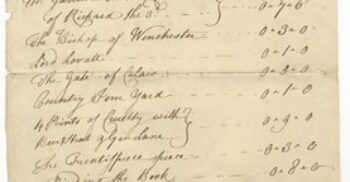 of Richard the 3d. } 0 - 7 - 6
The Bishop of Winchester 0 - 3 - 0
Lord Lovatt 0 - 1 - 0
The Gate of Calais 0 - 5 - 0
Country Inn Yard 0 - 1 - 0
4 Prints of Cruelty with }
Beer Street & Gin Lane } 0 - 9 - 0
The Frontispiece piece 0 - 3 - 0
the Book 0 - 8 - 0